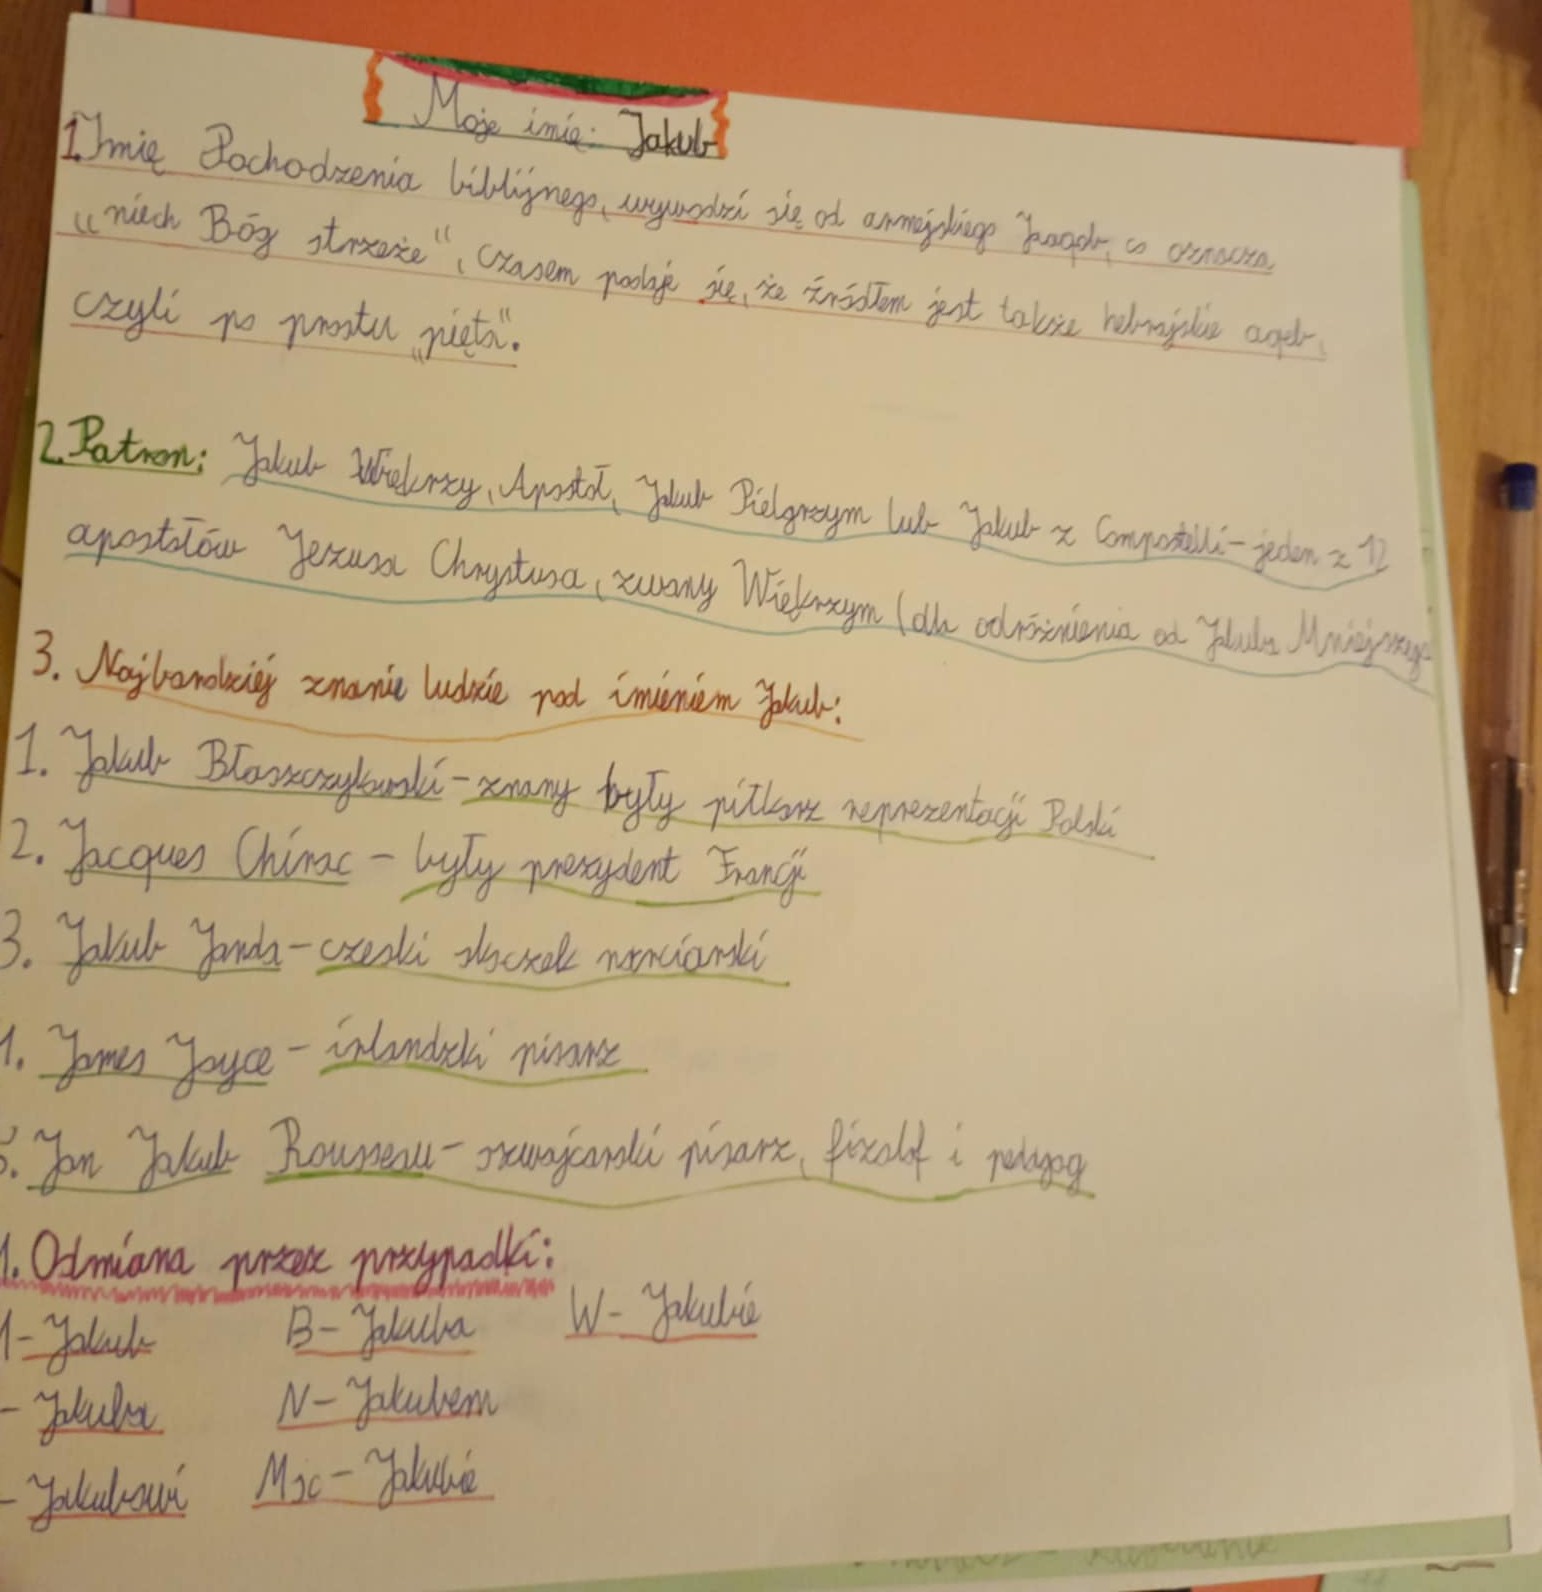 Moje imię: Jakub
1. Imię Pochodzenia biblijnego, wywodzi się od armejskiego Jaaqob, co oznacza
„niech Bóg strzeże", czasem podaje się, że źródłem jest także hebrajskie aqeb,
czyli po prostu „pięta".
2. Patron: Jakub Większy, Apostoł, Jakub Pielgrzym lub Jakub z Compostelli - jeden z 12
apostołów Jezusa Chrystusa, zwany Większym (dla odróżnienia od Jakuba Mniejszego
3. Najbardziej znanie ludzie pod imieniem Jakub:
1. Jakub Błaszczykowski - znany były piłkarz reprezentacji Polski
2. Jacques Chirac - były prezydent Francji
3. Jakub Janda - czeski skoczek narciarski
4. James Joyce - irlandzki pisarz
5. Jan Jakub Rousseau - szwajcarski pisarz, fizolof i pedagog
4. Odmiana przez przypadki:
M - Jakub B - Jakuba W - Jakubie
- Jakuba N - Jakubem
- Jakubowi Msc - Jakubie